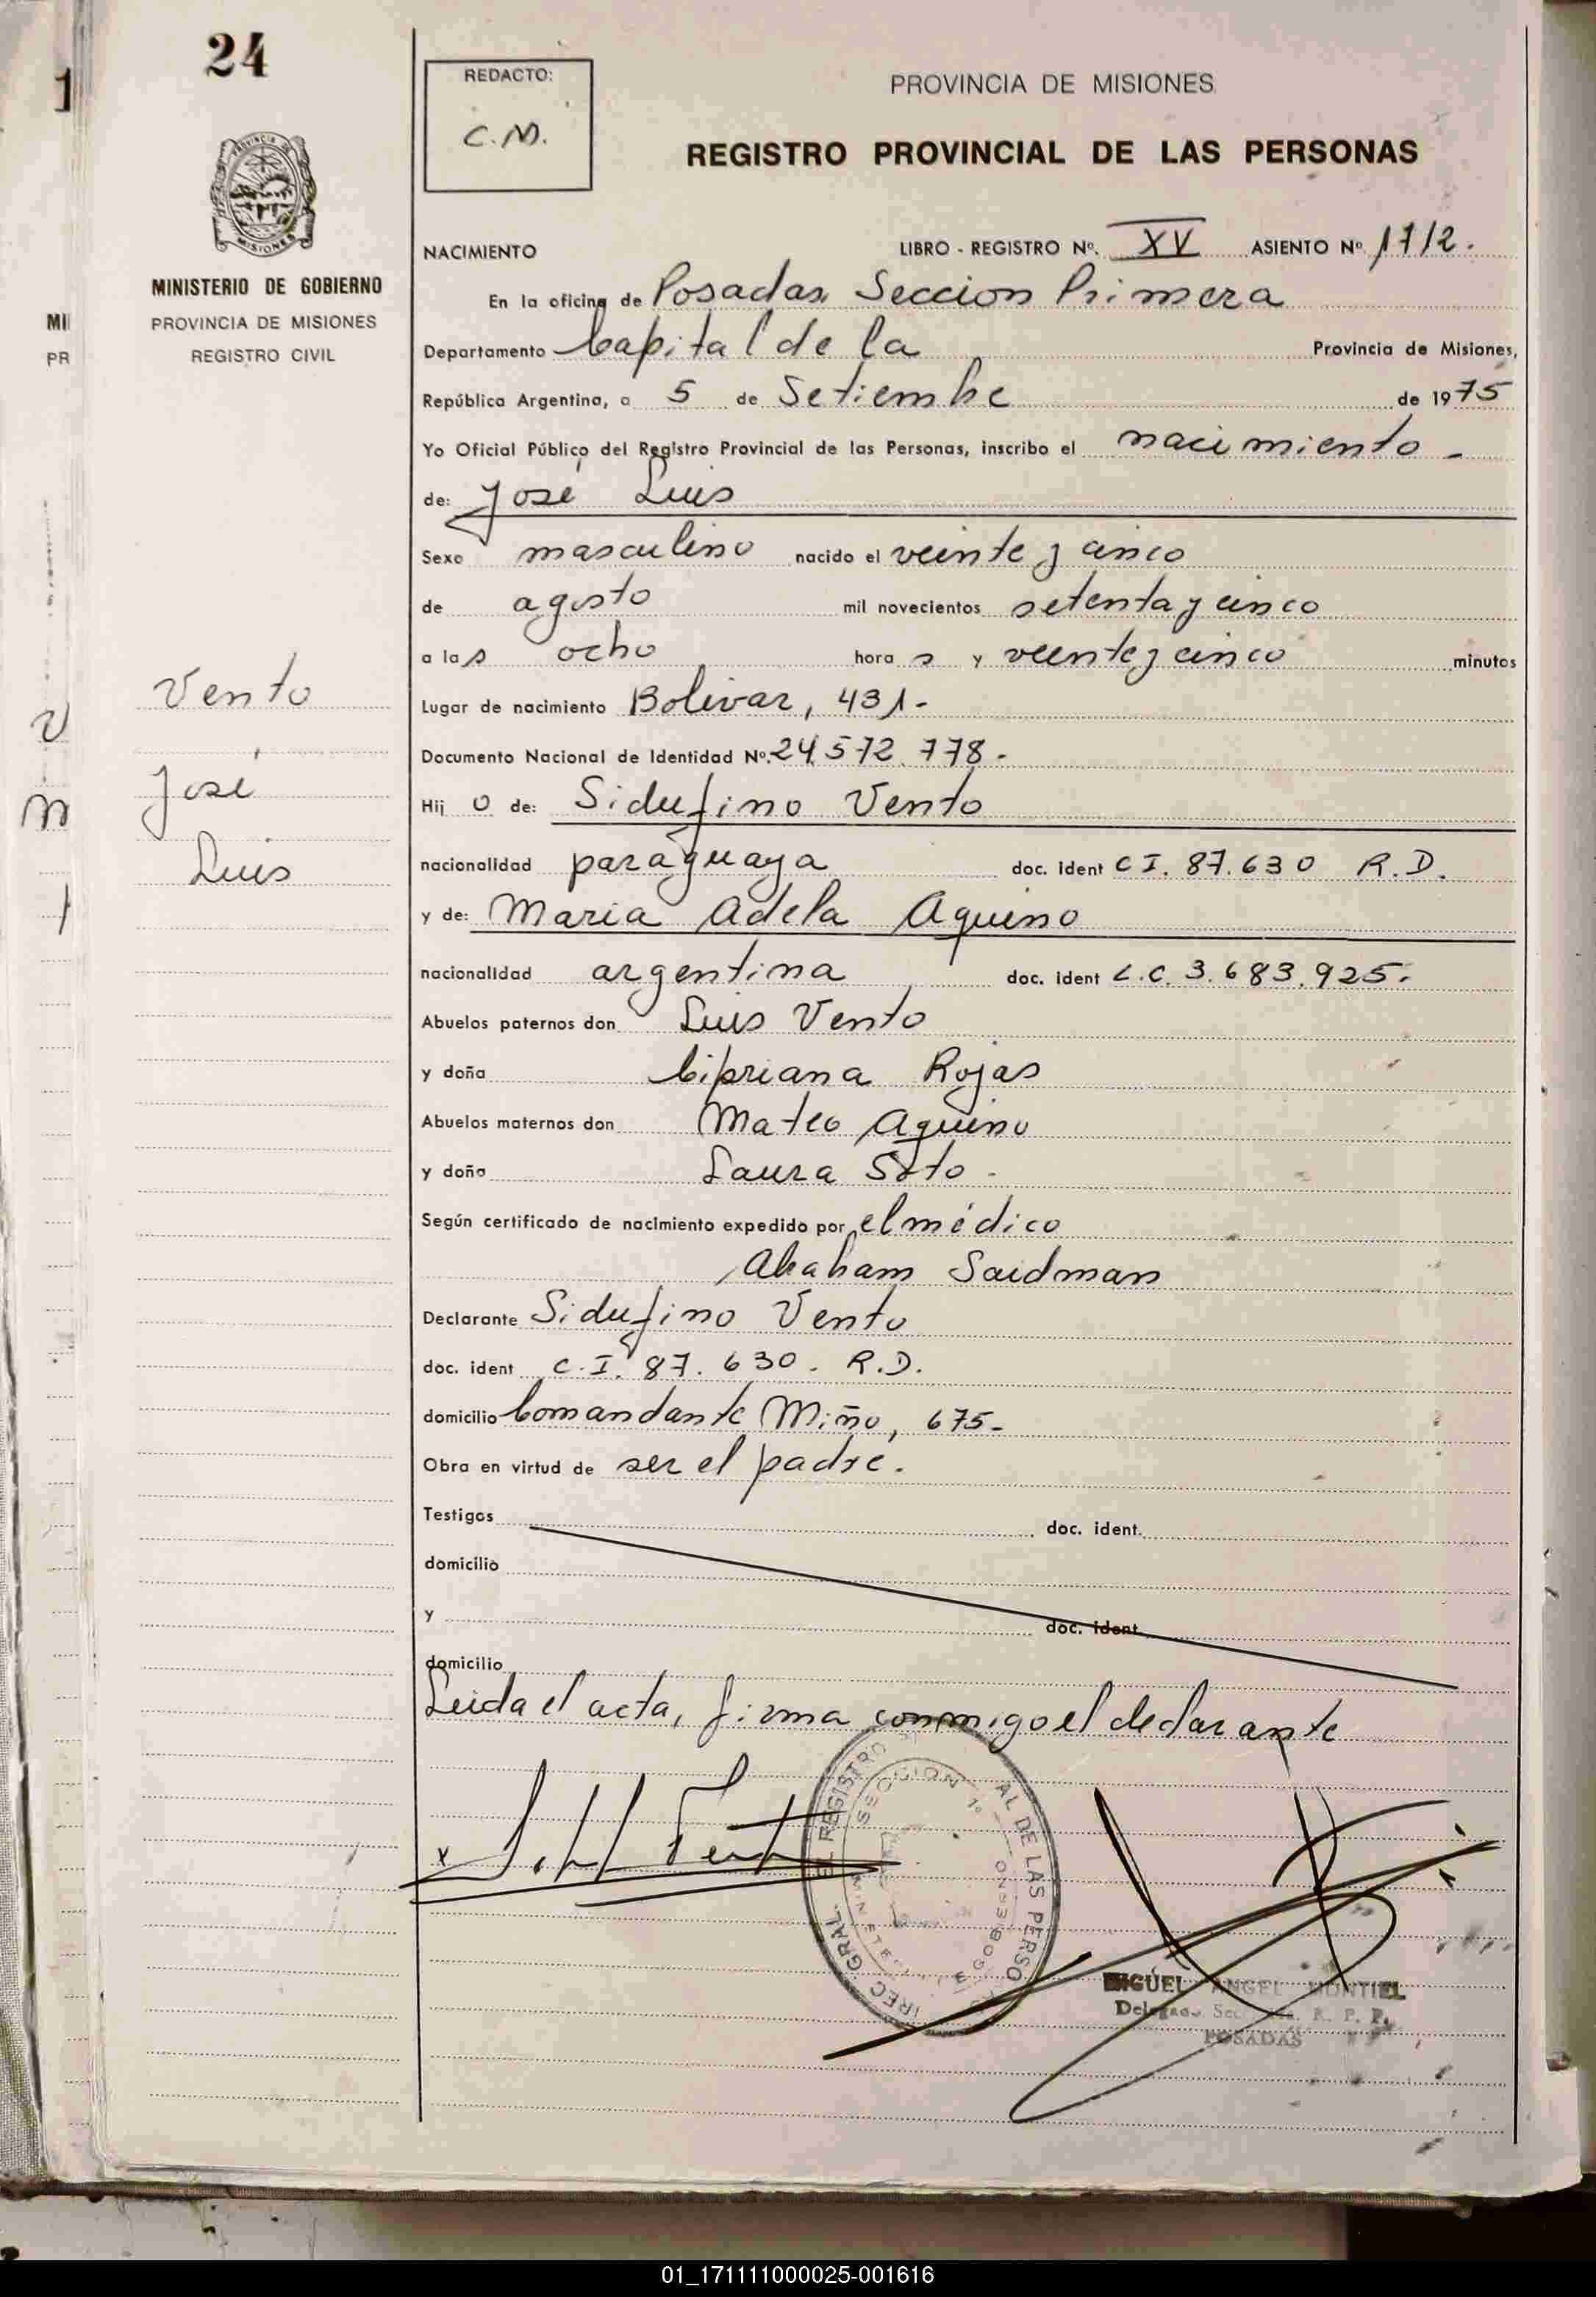 24
1
REDACTO:
C.M.
PROVINCIA DE MISIONES
REGISTRO PROVINCIAL DE LAS PERSONAS
MISIONES
MINISTERIO DE GOBIERNO
PROVINCIA DE MISIONES
REGISTRO CIVIL
MI
PR
NACIMIENTO LIBRO - REGISTRO Nº. XV ASIENTO Nº 1712.
En la oficina de Posadas Seccion Primera
Departamento Capital de la Provincia de Misiones,
República Argentina, a 5 de Setiembre de 1975
Yo Oficial Público del Registro Provincial de las Personas, inscribo el nacimiento -
de: José Luis
Sexo masculino nacido el veinte y cinco
de agosto mil novecientos setenta y cinco
a las ocho horas y veinte y cinco minutos
Vento
José
Luis
Lugar de nacimiento Bolivar, 431.-
Documento Nacional de Identidad Nº. 24.572.778.-
Hijo de: Sidufino Vento
nacionalidad paraguaya doc. ident C I. 87.630 R.D.
y de: Maria Adela Aquino
nacionalidad argentina doc. ident L.C. 3.683.925.
Abuelos paternos don Luis Vento
y doña Cipriana Rojas
Abuelos maternos don Mateo Aquino
y doña Laura Soto -
Según certificado de nacimiento expedido por el médico
Abraham Saidman
Declarante Sidufino Vento
doc. ident C.I. 87.630. R.D.
domicilio Comandante Miño, 675-
Obra en virtud de ser el padre.
Testigos doc. ident.
domicilio
y doc. ident
domicilio
Leida el acta, firma conmigo el declarante
x
REGISTRO AL DE LAS PERSO
SECCION 1º
MIGUEL ANGEL MONTIEL
R. P. P.
POSADAS
01_171111000025-001616